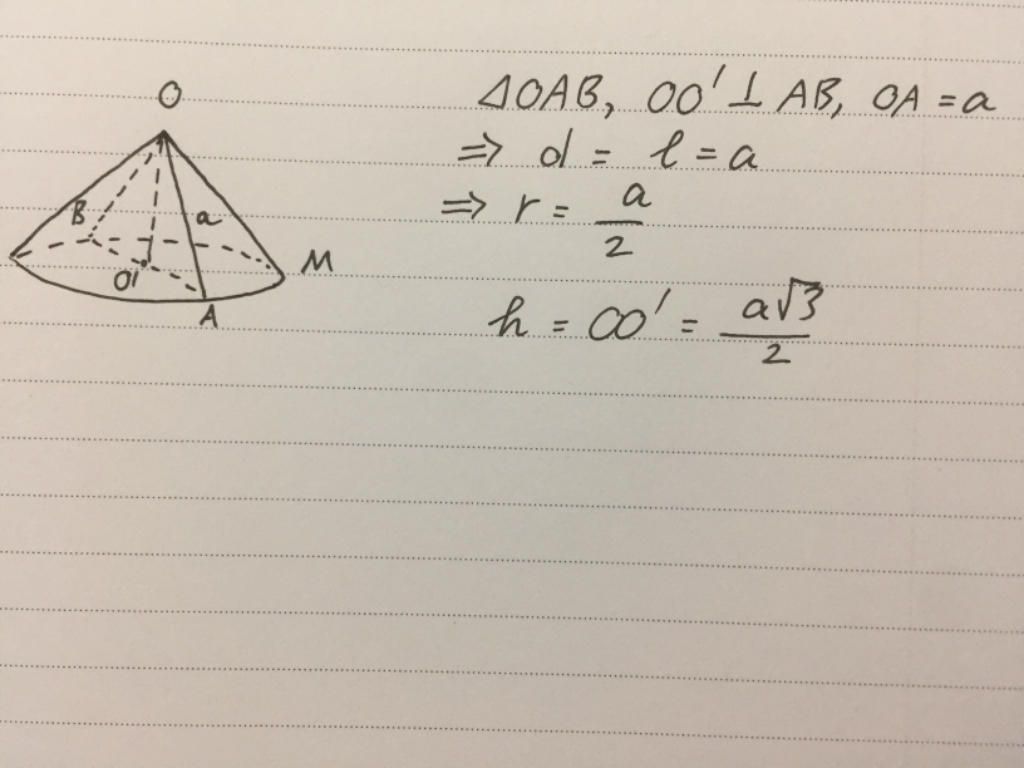 O
B
a
M
O'
A
△OAB, OO' ⊥ AB, OA = a
⇒ d = l = a
⇒ r = a/2
h = OO' = a√3/2